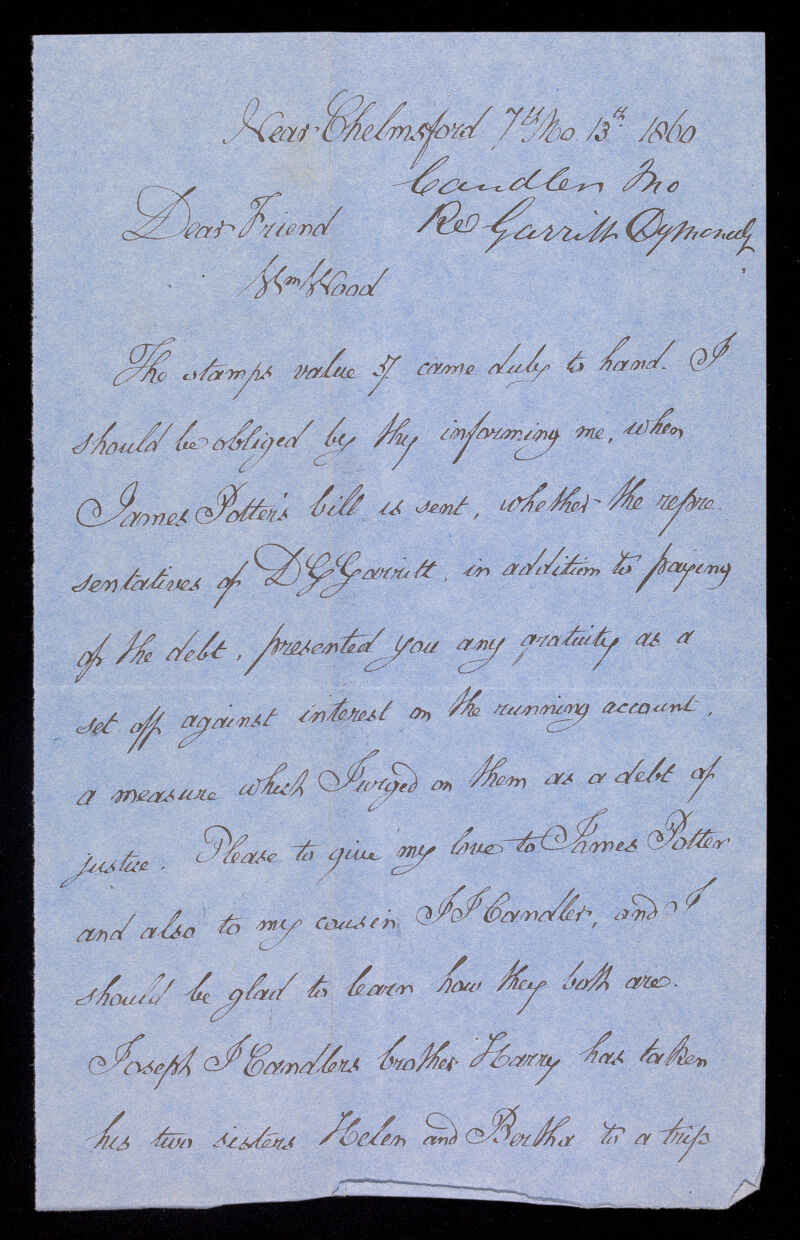 Near Chelmsford 7th Mo. 13th 1860
Candler Jno
Re Garritt Dymond
Dear Friend
Wm Wood
The stamps value 5/. came duly to hand. I
should be obliged by thy informing me, when
James Potter's bill is sent, whether the repre
sentatives of D G Garritt, in addition to paying
of the debt, presented you any gratuity as a
set off against interest on the running account,
a measure which I urged on them as a debt of
justice. Please to give my love to James Potter
and also to my cousin J J Candler, and I
should be glad to learn how they both are.
Joseph J Candlers brother Harry has taken
his two sisters Helen and Bertha to a trip